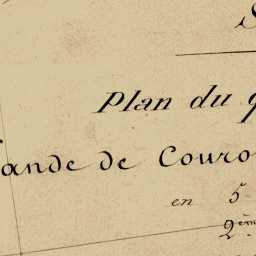 Plan du
ande de Couro
en 5
2ème